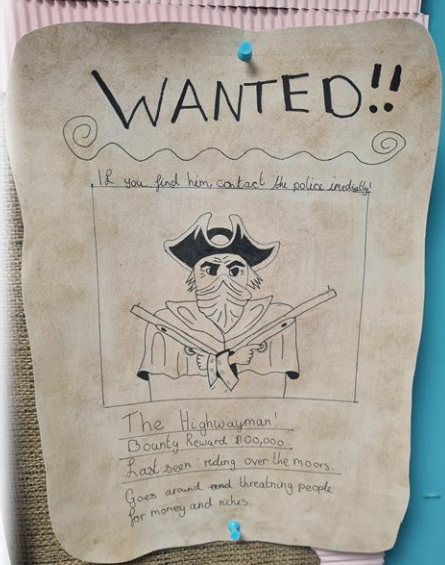 WANTED!!
If you find him, contact the police imediatly!
The Highwayman!
Bounty Reward $100,000
Last seen: riding over the moors.
Goes around and threatning people
for money and riches.